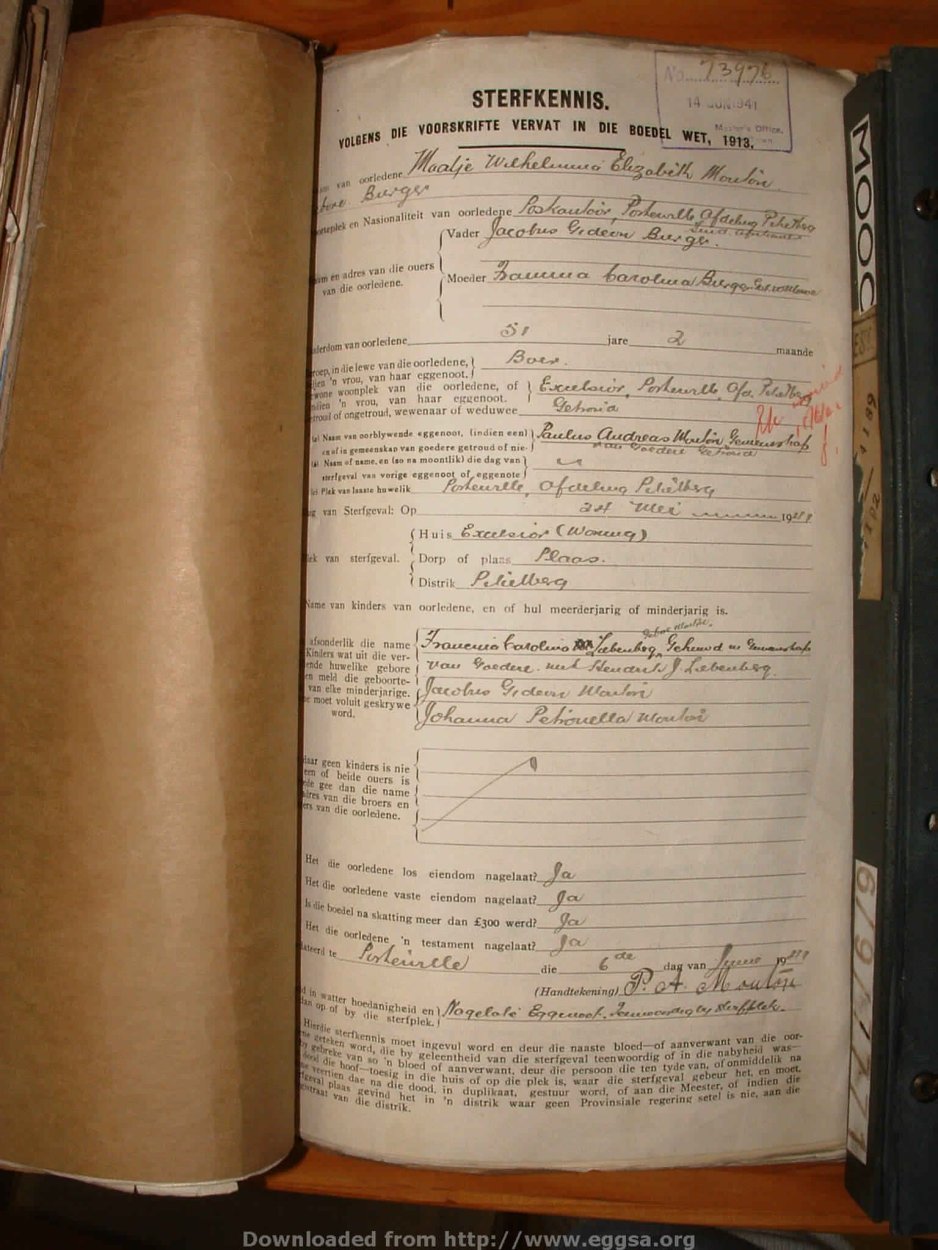 No. 73976
14 JUN 1941
Master's Office.
STERFKENNIS.
VOLGENS DIE VOORSKRIFTE VERVAT IN DIE BOEDEL WET, 1913.
van oorledene Maatje Wilhelmina Elizabeth Mouton
Burger
en Nasionaliteit van oorledene Poskantoor, Porterville Afdeling Piketberg
Vader Jacobus Gideon Burger.
en adres van die ouers
van die oorledene.
Moeder Francina Carolina Burger
van oorledene 51 jare 2 maande
in die lewe van die oorledene,
'n vrou, van haar eggenoot. Boer.
woonplek van die oorledene, of
indien 'n vrou, van haar eggenoot. Excelsior, Porterville, Afd. Piketberg
getroud of ongetroud, wewenaar of weduwee Getroud
(a) Naam van oorblywende eggenoot, (indien een)
en of in gemeenskap van goedere getroud of nie. Paulus Andreas Mouton Gemeenskap
van Goedere Getroud
Naam of name, en (so na moontlik) die dag van
sterfgeval van vorige eggenoot of eggenote
Plek van laaste huwelik Porterville, Afdeling Piketberg
van Sterfgeval: Op 24 Mei 1941
Huis Excelsior (Woning)
van sterfgeval. Dorp of plaas Plaas.
Distrik Piketberg
Name van kinders van oorledene, en of hul meerderjarig of minderjarig is.
gebore Mouton.
afsonderlik die name
Kinders wat uit die
huwelike gebore
en meld die
van elke minderjarige.
moet voluit geskrywe
word.
Francina Carolina Liebenberg, Gehuwd in Gemeenskap
van Goedere met Hendrik J. Liebenberg
Jacobus Gideon Mouton
Johanna Petronella Mouton
daar geen kinders is nie
een of beide ouers is
gee dan die name
van die broers en
van die oorledene.
Het die oorledene los eiendom nagelaat? Ja
Het die oorledene vaste eiendom nagelaat? Ja
Is die boedel na skatting meer dan £300 werd? Ja
Het die oorledene 'n testament nagelaat? Ja
te Porterville die 6de dag van Junie 1941
(Handtekening) P. A. Mouton
in watter hoedanigheid en
op of by die sterfplek. Nagelate Eggenoot. Teenwoordig by sterfplek.
Hierdie sterfkennis moet ingevul word en deur die naaste bloed—of aanverwant van die
geteken word, die by geleentheid van die sterfgeval teenwoordig of in die nabyheid was—
gebreke van so 'n bloed of aanverwant, deur die persoon die ten tyde van, of onmiddelik na
dood die hoof—toesig in die huis of op die plek is, waar die sterfgeval gebeur het, en moet,
veertien dae na die dood, in duplikaat, gestuur word, of aan die Meester, of indien die
plaas gevind het in 'n distrik waar geen Provinsiale regering setel is nie, aan die
van die distrik.
MOOC
6/9/7771
Downloaded from http://www.eggsa.org